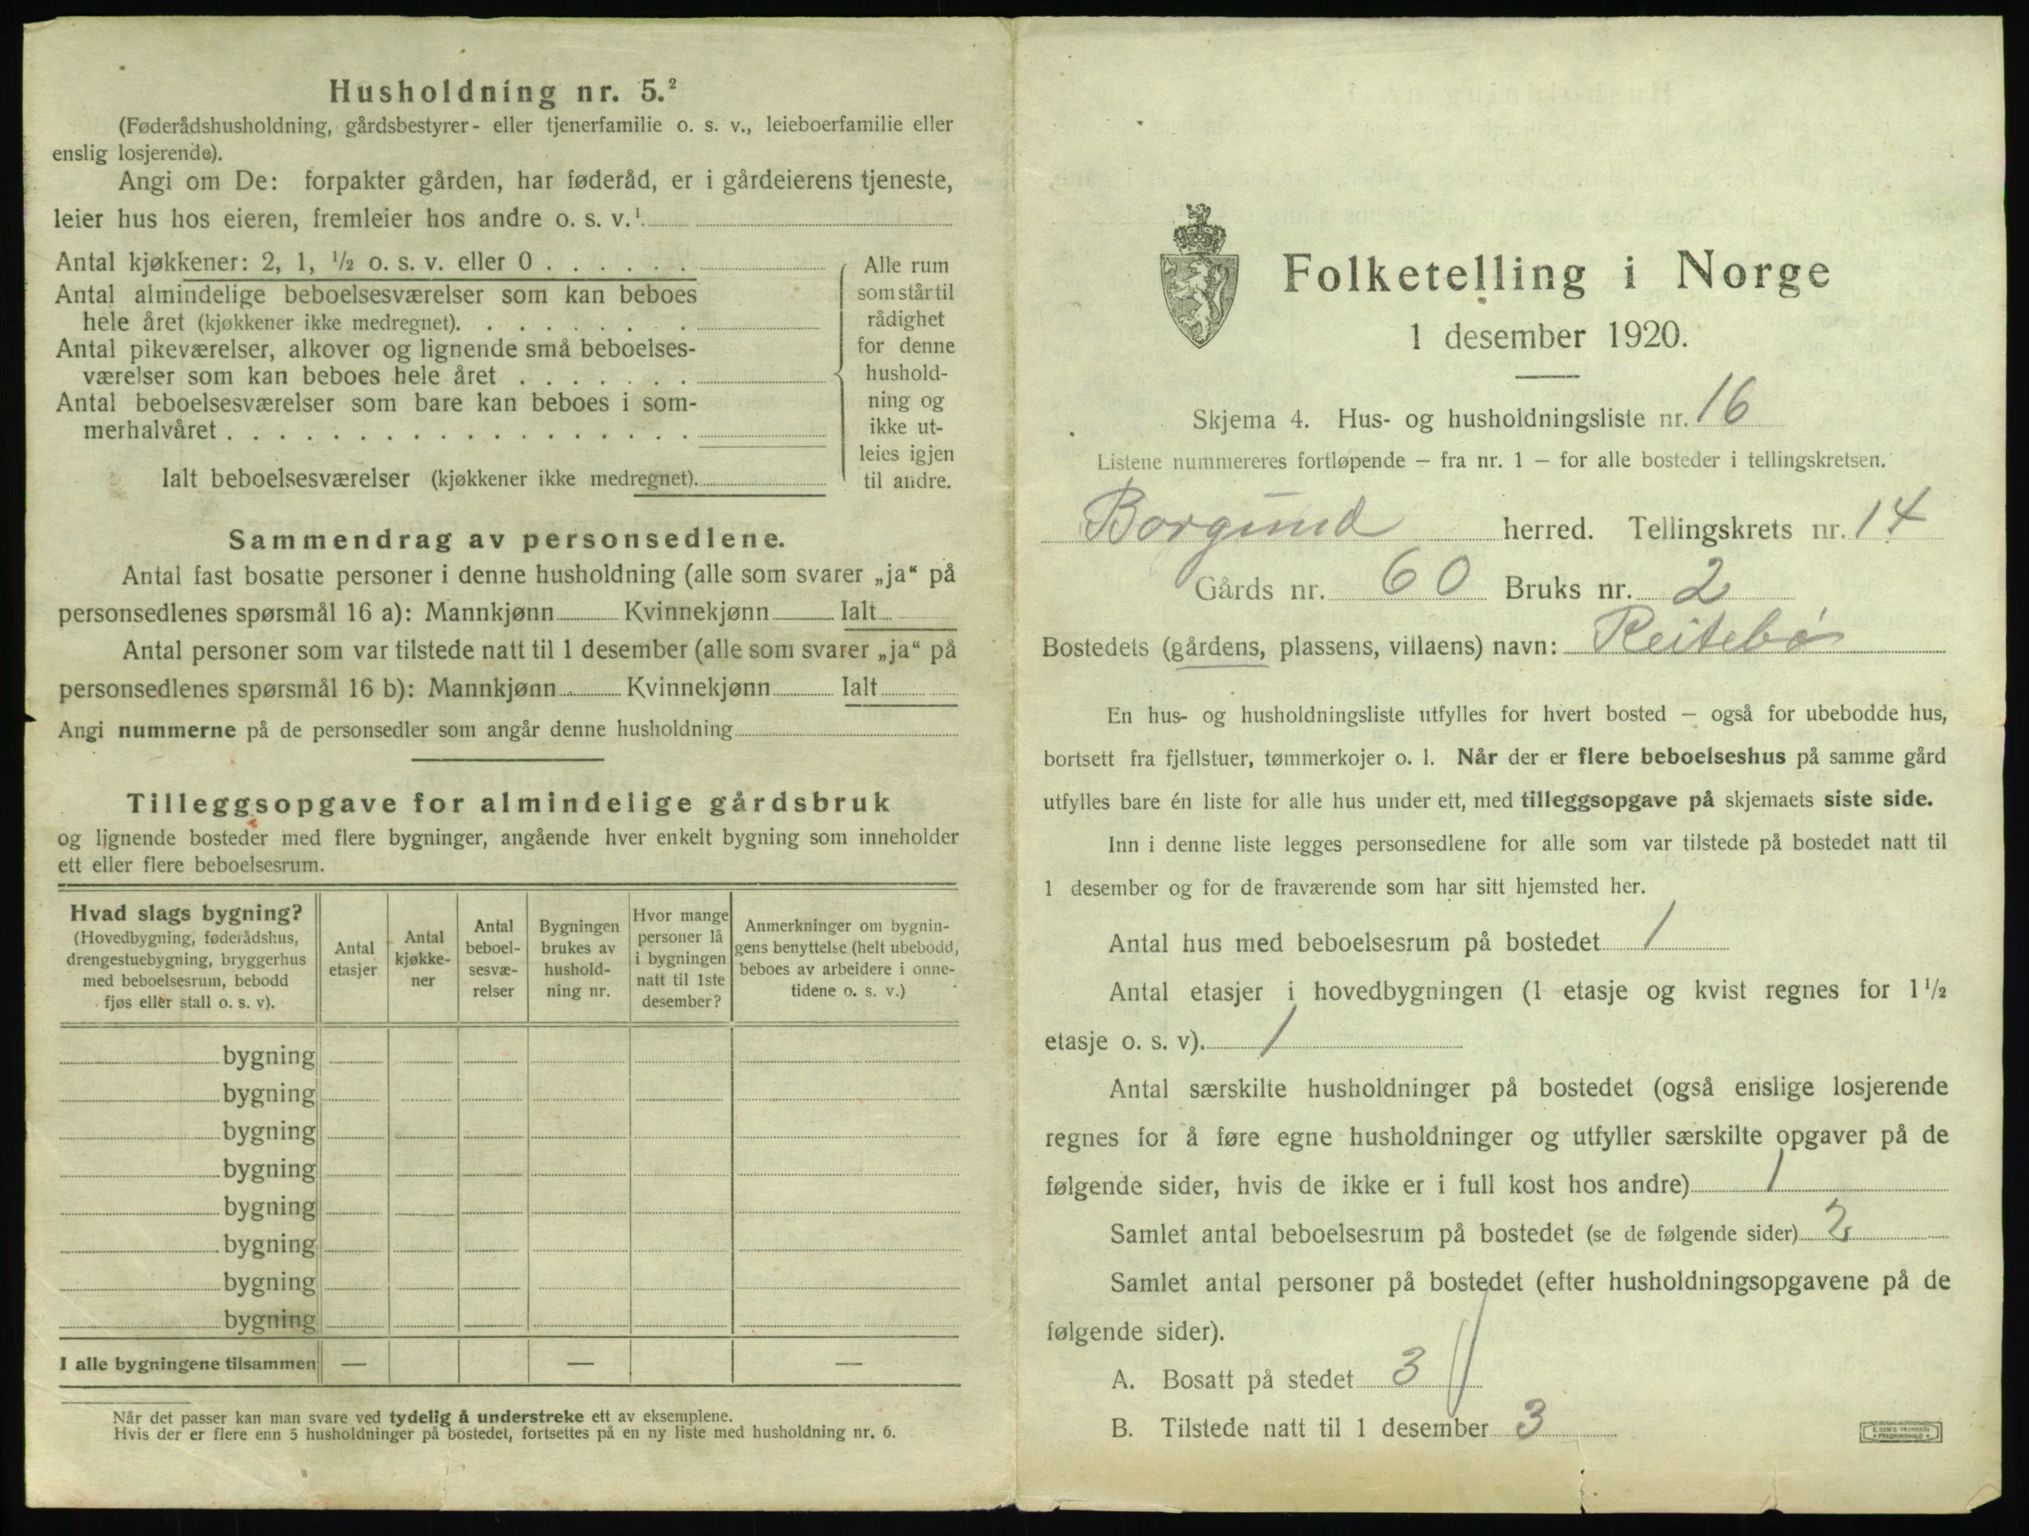 Husholdning nr. 5.²
(Føderådshusholdning, gårdsbestyrer- eller tjenerfamilie o. s. v., leieboerfamilie eller
enslig losjerende).
Angi om De: forpakter gården, har føderåd, er i gårdeierens tjeneste,
leier hus hos eieren, fremleier hos andre o. s. v.¹
Antal kjøkkener: 2, 1, ½ o. s. v. eller 0 . . . . . .
Antal almindelige beboelsesværelser som kan beboes
hele året (kjøkkener ikke medregnet). . . . . . . . .
Antal pikeværelser, alkover og lignende små beboelses-
værelser som kan beboes hele året . . . . . . .
Antal beboelsesværelser som bare kan beboes i som-
merhalvåret . . . . . . . . . . . . . . . . . .
Ialt beboelsesværelser (kjøkkener ikke medregnet).
Alle rum
som står til
rådighet
for denne
hushold-
ning og
ikke ut-
leies igjen
til andre.
Sammendrag av personsedlene.
Antal fast bosatte personer i denne husholdning (alle som svarer „ja“ på
personsedlenes spørsmål 16 a): Mannkjønn Kvinnekjønn Ialt
Antal personer som var tilstede natt til 1 desember (alle som svarer „ja“ på
personsedlenes spørsmål 16 b): Mannkjønn Kvinnekjønn Ialt
Angi nummerne på de personsedler som angår denne husholdning
Tilleggsopgave for almindelige gårdsbruk
og lignende bosteder med flere bygninger, angående hver enkelt bygning som inneholder
ett eller flere beboelsesrum.
Hvad slags bygning?
(Hovedbygning, føderådshus,
drengestuebygning, bryggerhus
med beboelsesrum, bebodd
fjøs eller stall o. s. v).
Antal
etasjer
Antal
kjøkke-
ner
Antal
beboel-
sesvæ-
relser
Bygningen
brukes av
hushold-
ning nr.
Hvor mange
personer lå
i bygningen
natt til 1ste
desember?
Anmerkninger om bygnin-
gens benyttelse (helt ubebodd,
beboes av arbeidere i onne-
tidene o. s. v.)
bygning
bygning
bygning
bygning
bygning
bygning
bygning
bygning
I alle bygningene tilsammen — — —
Når det passer kan man svare ved tydelig å understreke ett av eksemplene.
Hvis der er flere enn 5 husholdninger på bostedet, fortsettes på en ny liste med husholdning nr. 6.
Folketelling i Norge
1 desember 1920.
Skjema 4. Hus- og husholdningsliste nr. 16
Listene nummereres fortløpende — fra nr. 1 — for alle bosteder i tellingskretsen.
Borgund herred. Tellingskrets nr. 14
Gårds nr. 60 Bruks nr. 2
Bostedets (gårdens, plassens, villaens) navn: Reitebø
En hus- og husholdningsliste utfylles for hvert bosted — også for ubebodde hus,
bortsett fra fjellstuer, tømmerkojer o. l. Når der er flere beboelseshus på samme gård
utfylles bare én liste for alle hus under ett, med tilleggsopgave på skjemaets siste side.
Inn i denne liste legges personsedlene for alle som var tilstede på bostedet natt til
1 desember og for de fraværende som har sitt hjemsted her.
Antal hus med beboelsesrum på bostedet 1
Antal etasjer i hovedbygningen (1 etasje og kvist regnes for 1½
etasje o. s. v). 1
Antal særskilte husholdninger på bostedet (også enslige losjerende
regnes for å føre egne husholdninger og utfyller særskilte opgaver på de
følgende sider, hvis de ikke er i full kost hos andre) 1
Samlet antal beboelsesrum på bostedet (se de følgende sider) 2
Samlet antal personer på bostedet (efter husholdningsopgavene på de
følgende sider).
A. Bosatt på stedet 3
B. Tilstede natt til 1 desember 3
E. SEM'S TRYKKERI
FREDRIKSHALD